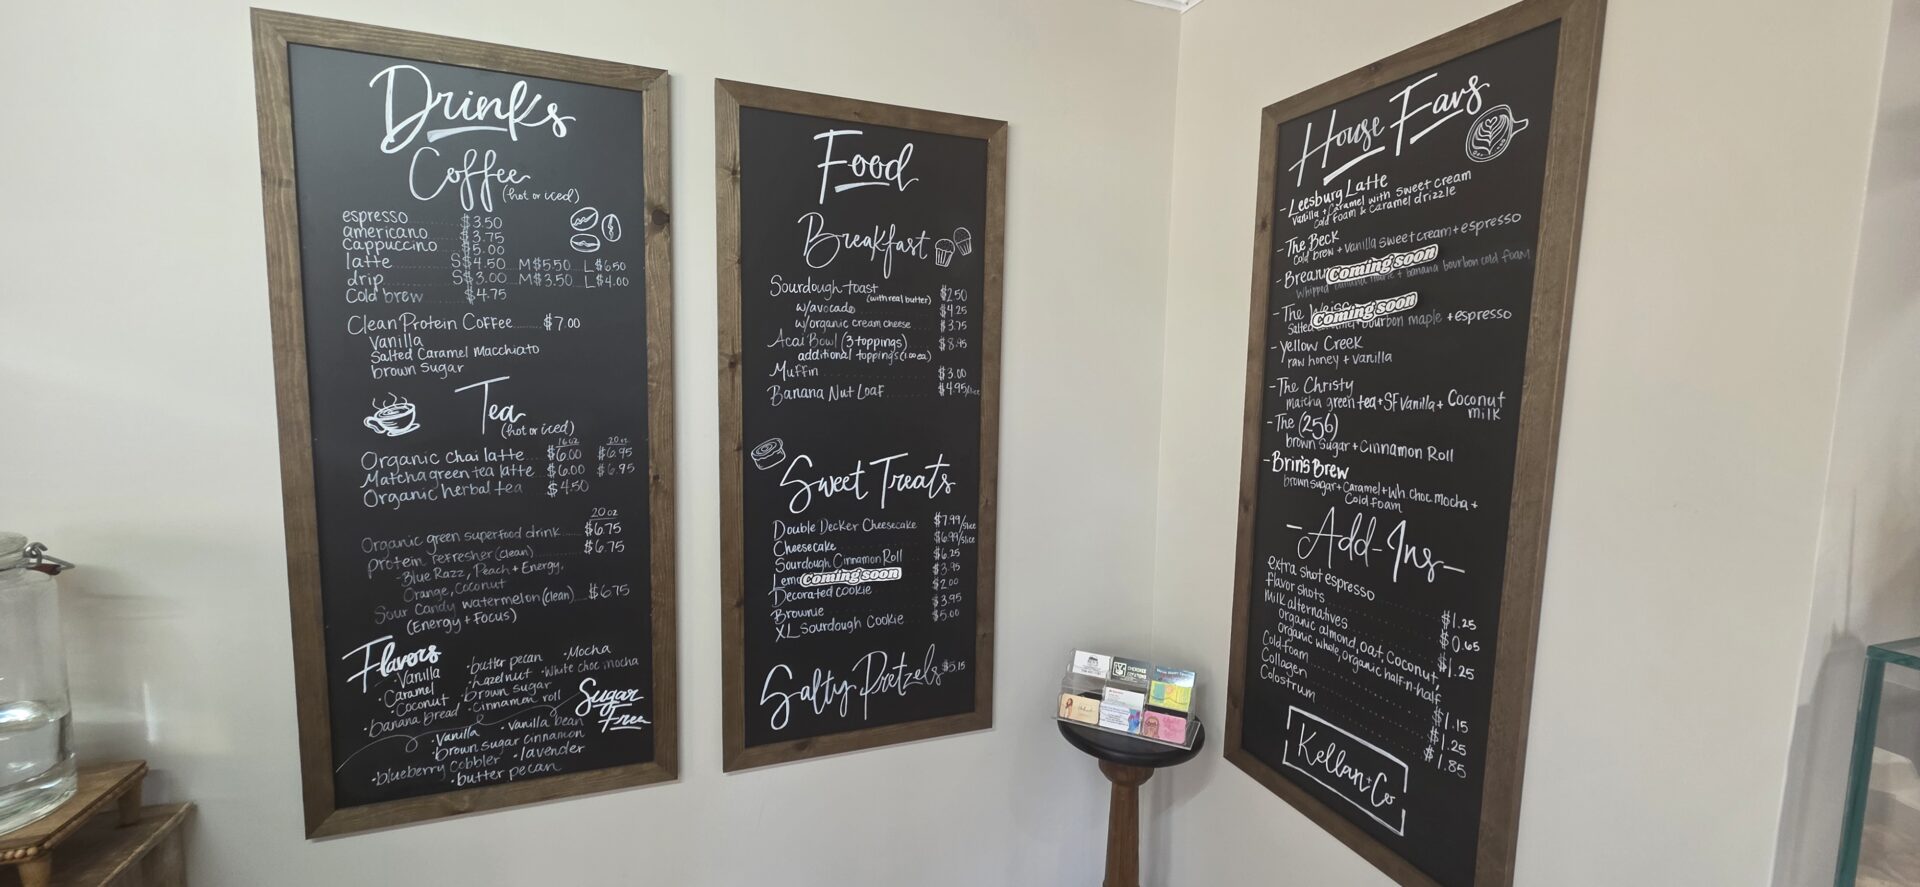 Drinks
Coffee
(hot or iced)
espresso $3.50
americano $3.75
Cappuccino $5.00
latte S$4.50 M$5.50 L$6.50
drip S$3.00 M$3.50 L$4.00
Cold brew $4.75
Clean Protein Coffee $7.00
Vanilla
Salted Caramel Macchiato
brown Sugar
Tea
(hot or iced)
16oz 20oz
Organic chai latte $6.00 $6.95
Matcha green tea latte $6.00 $6.95
Organic herbal tea $4.50
20oz
Organic green superfood drink $6.75
protein refresher (clean) $6.75
-Blue Razz, Peach + Energy,
Orange, Coconut
Sour Candy watermelon (clean) $6.75
(Energy + Focus)
Flavors
•Vanilla •butter pecan •Mocha
•Caramel •hazelnut •White choc mocha
•Coconut •brown sugar
•banana bread •Cinnamon roll
Sugar Free
•Vanilla •Vanilla bean
•brown sugar cinnamon
•blueberry cobbler •lavender
•butter pecan
Food
Breakfast
Sourdough toast $2.50
(with real butter)
w/avocado $4.25
w/organic cream cheese $3.75
Acai Bowl (3 toppings) $8.95
additional toppings (1.00 ea)
Muffin $3.00
Banana Nut Loaf $4.95/slice
Sweet Treats
Double Decker Cheesecake $7.99/slice
Cheesecake $6.99/slice
Sourdough Cinnamon Roll $6.25
Coming soon $3.95
Decorated cookie $2.00
Brownie $3.95
XL Sourdough Cookie $5.00
Salty Pretzels $5.15
House Favs
-Leesburg Latte
Vanilla + Caramel with sweet cream
Cold foam & caramel drizzle
-The Beck
Cold brew + vanilla sweet cream + espresso
- Coming soon
Whipped banana + banana bourbon cold foam
-The Coming soon
Salted + bourbon maple + espresso
-Yellow Creek
raw honey + vanilla
-The Christy
matcha green tea + SF Vanilla + Coconut
milk
-The (256)
brown Sugar + Cinnamon Roll
-Brin's Brew
brown sugar + Caramel + Wh. choc mocha +
Cold foam
-Add-Ins-
extra shot espresso $1.25
flavor shots $0.65
Milk alternatives $1.25
Organic almond, oat, Coconut,
Organic whole, organic half-n-half
Cold foam $1.15
Collagen $1.25
Colostrum $1.85
Kellan + Co